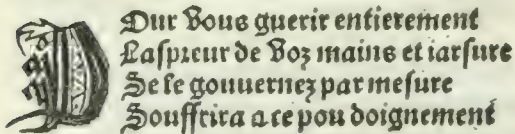 POur vous guerir entierement
Laspreur de voz mains et iarsure
Se se gouuernez par mesure
Souffrira a ce pou doignement